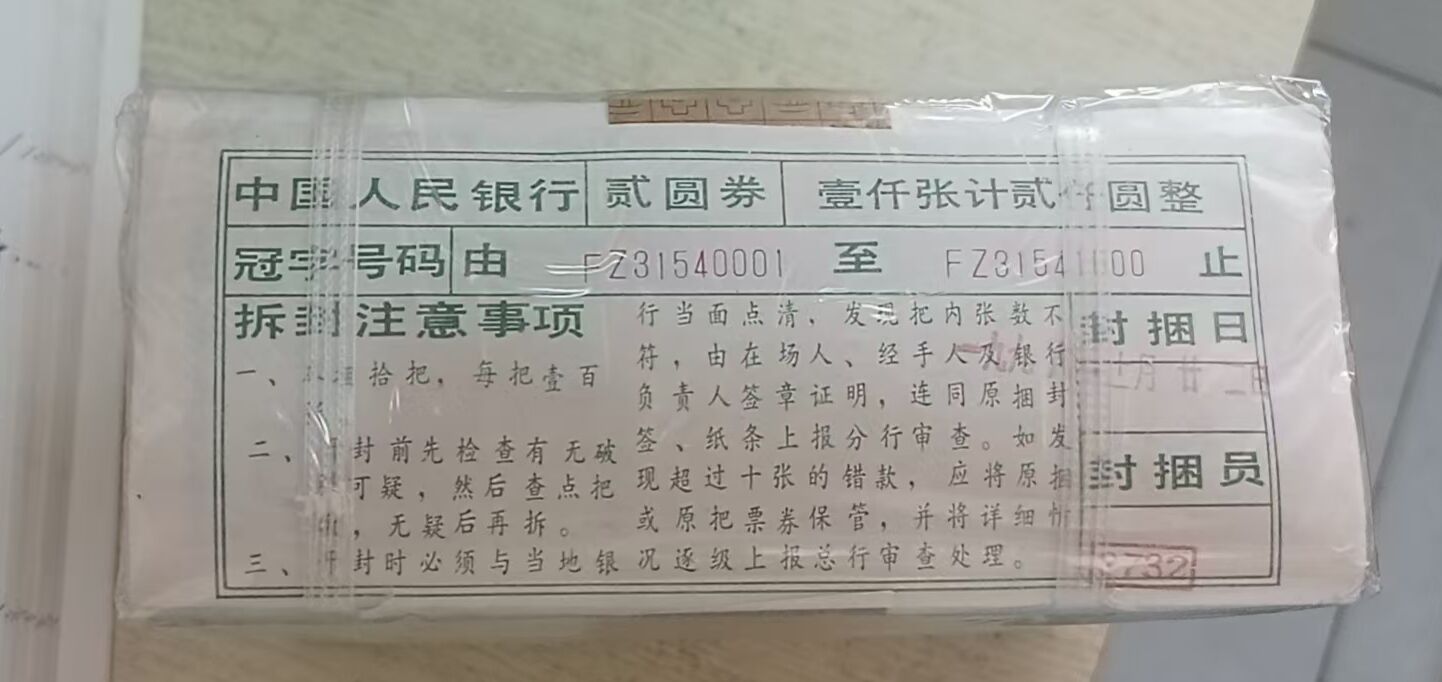 中国人民银行 贰圆券 壹仟张计贰仟圆整
冠字号码 由 FZ31540001 至 FZ31541000 止
拆封注意事项
一、 拾把，每把壹百
二、 封前先检查有无破
可疑，然后查点把
，无疑后再拆。
三、 封时必须与当地银
行当面点清、发现把内张数不
符，由在场人、经手人及银行
负责人签章证明，连同原捆封
签、纸条上报分行审查。如发
现超过十张的错款，应将原捆
或原把票券保管，并将详细情
况逐级上报总行审查处理。
封捆日
一九 七月廿二日
封捆员
3732